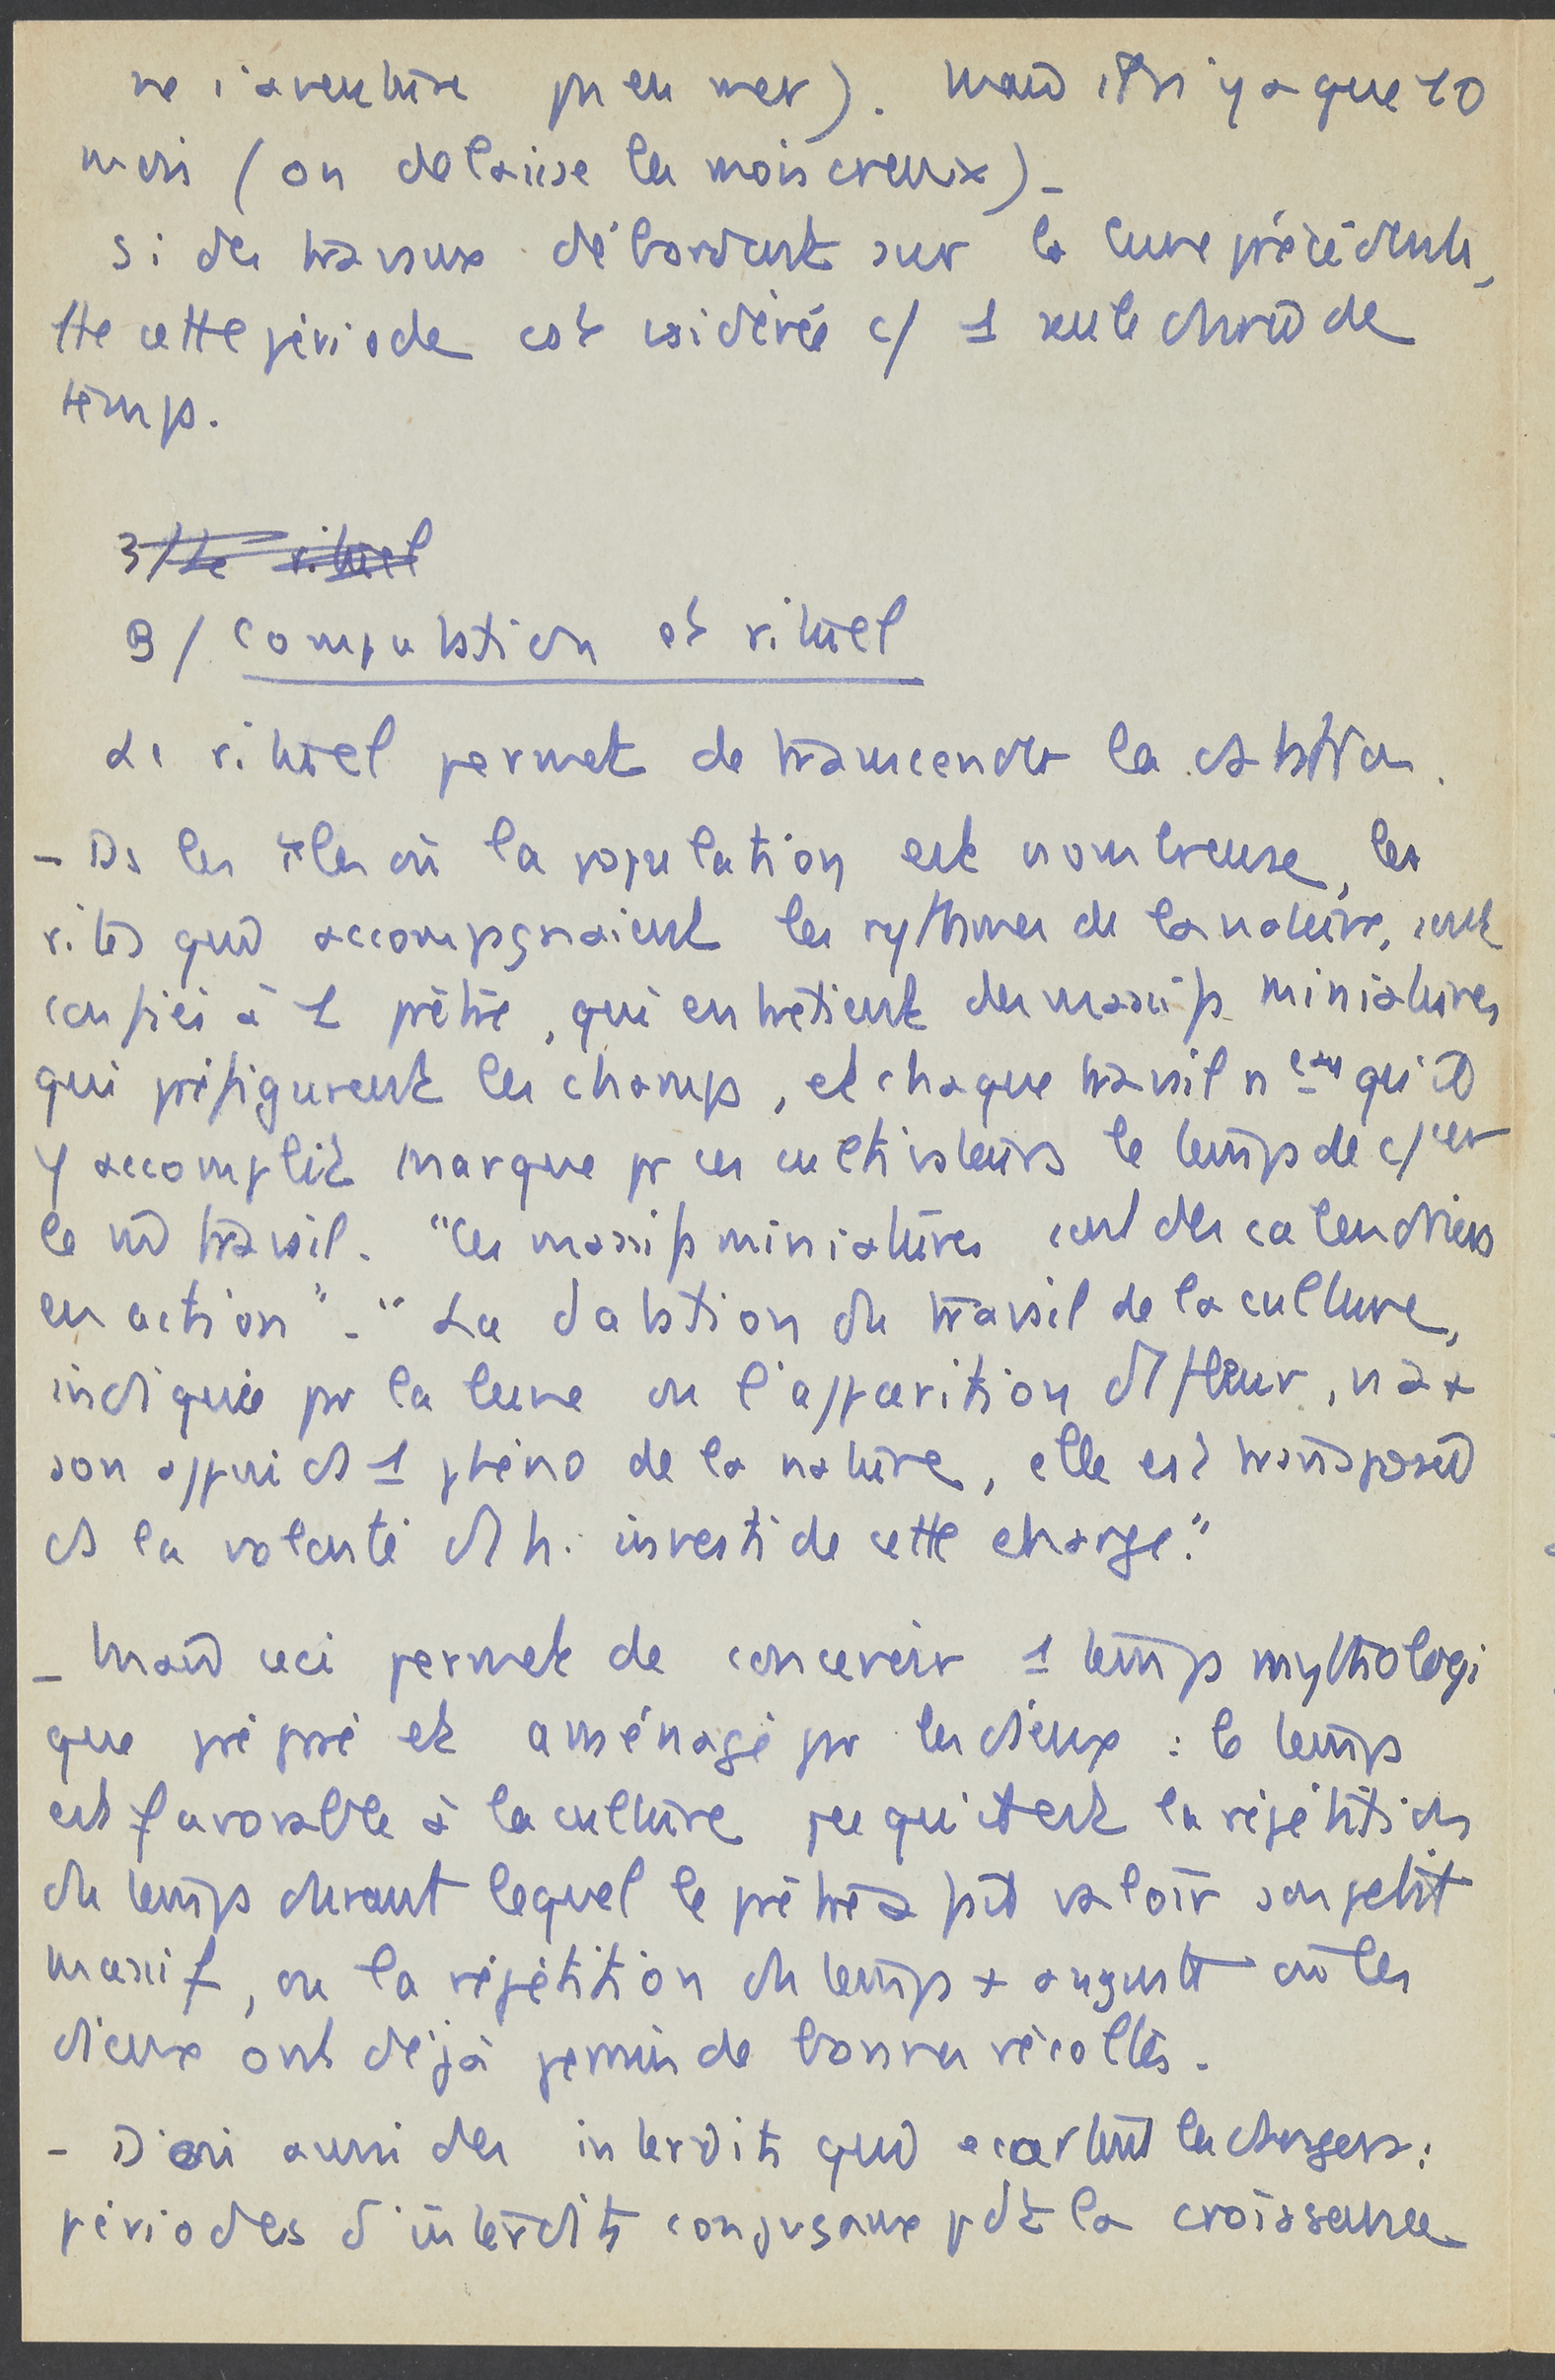 ne s'aventure pr en mer). mais il n'y a que 10
mois (on délaisse les mois creux)_
Si des travaux débordent sur la lune précédente,
tte cette période est csidérée c/ 1 seule durée de
temps.
3/ Le rituel
3/ Computation et rituel
Le rituel permet de transcender la
- Ds les îles où la population est nombreuse, les
rites qui accompagnaient les rythmes de la nature, sont
confiés à 1 prêtre, qui entretient des massifs miniatures
qui préfigurent les champs, et chaque travail qu'il
y accomplit marque pr les cultivateurs le temps de c/cer
le travail. "les massifs miniatures sont des calendriers
en action"_ "La datation du travail de la culture,
indiquée pr la lune ou l'apparition d'1 fleur, n'a +
son appui ds 1 phéno de la nature, elle est transposée
ds la volonté d'1 h. investi de cette charge."
_ mais ceci permet de concevoir 1 temps mythologi
que préparé et aménagé pr les dieux : le temps
est favorable à la culture pce qu'il est la répétition
du temps durant lequel le prêtre a fait valoir son petit
massif, ou la répétition du temps + auguste où les
dieux ont déjà permis de bonnes récoltes.
- D'où aussi des interdits qui écartent les dangers :
périodes d'interdits conjugaux pdt la croissance